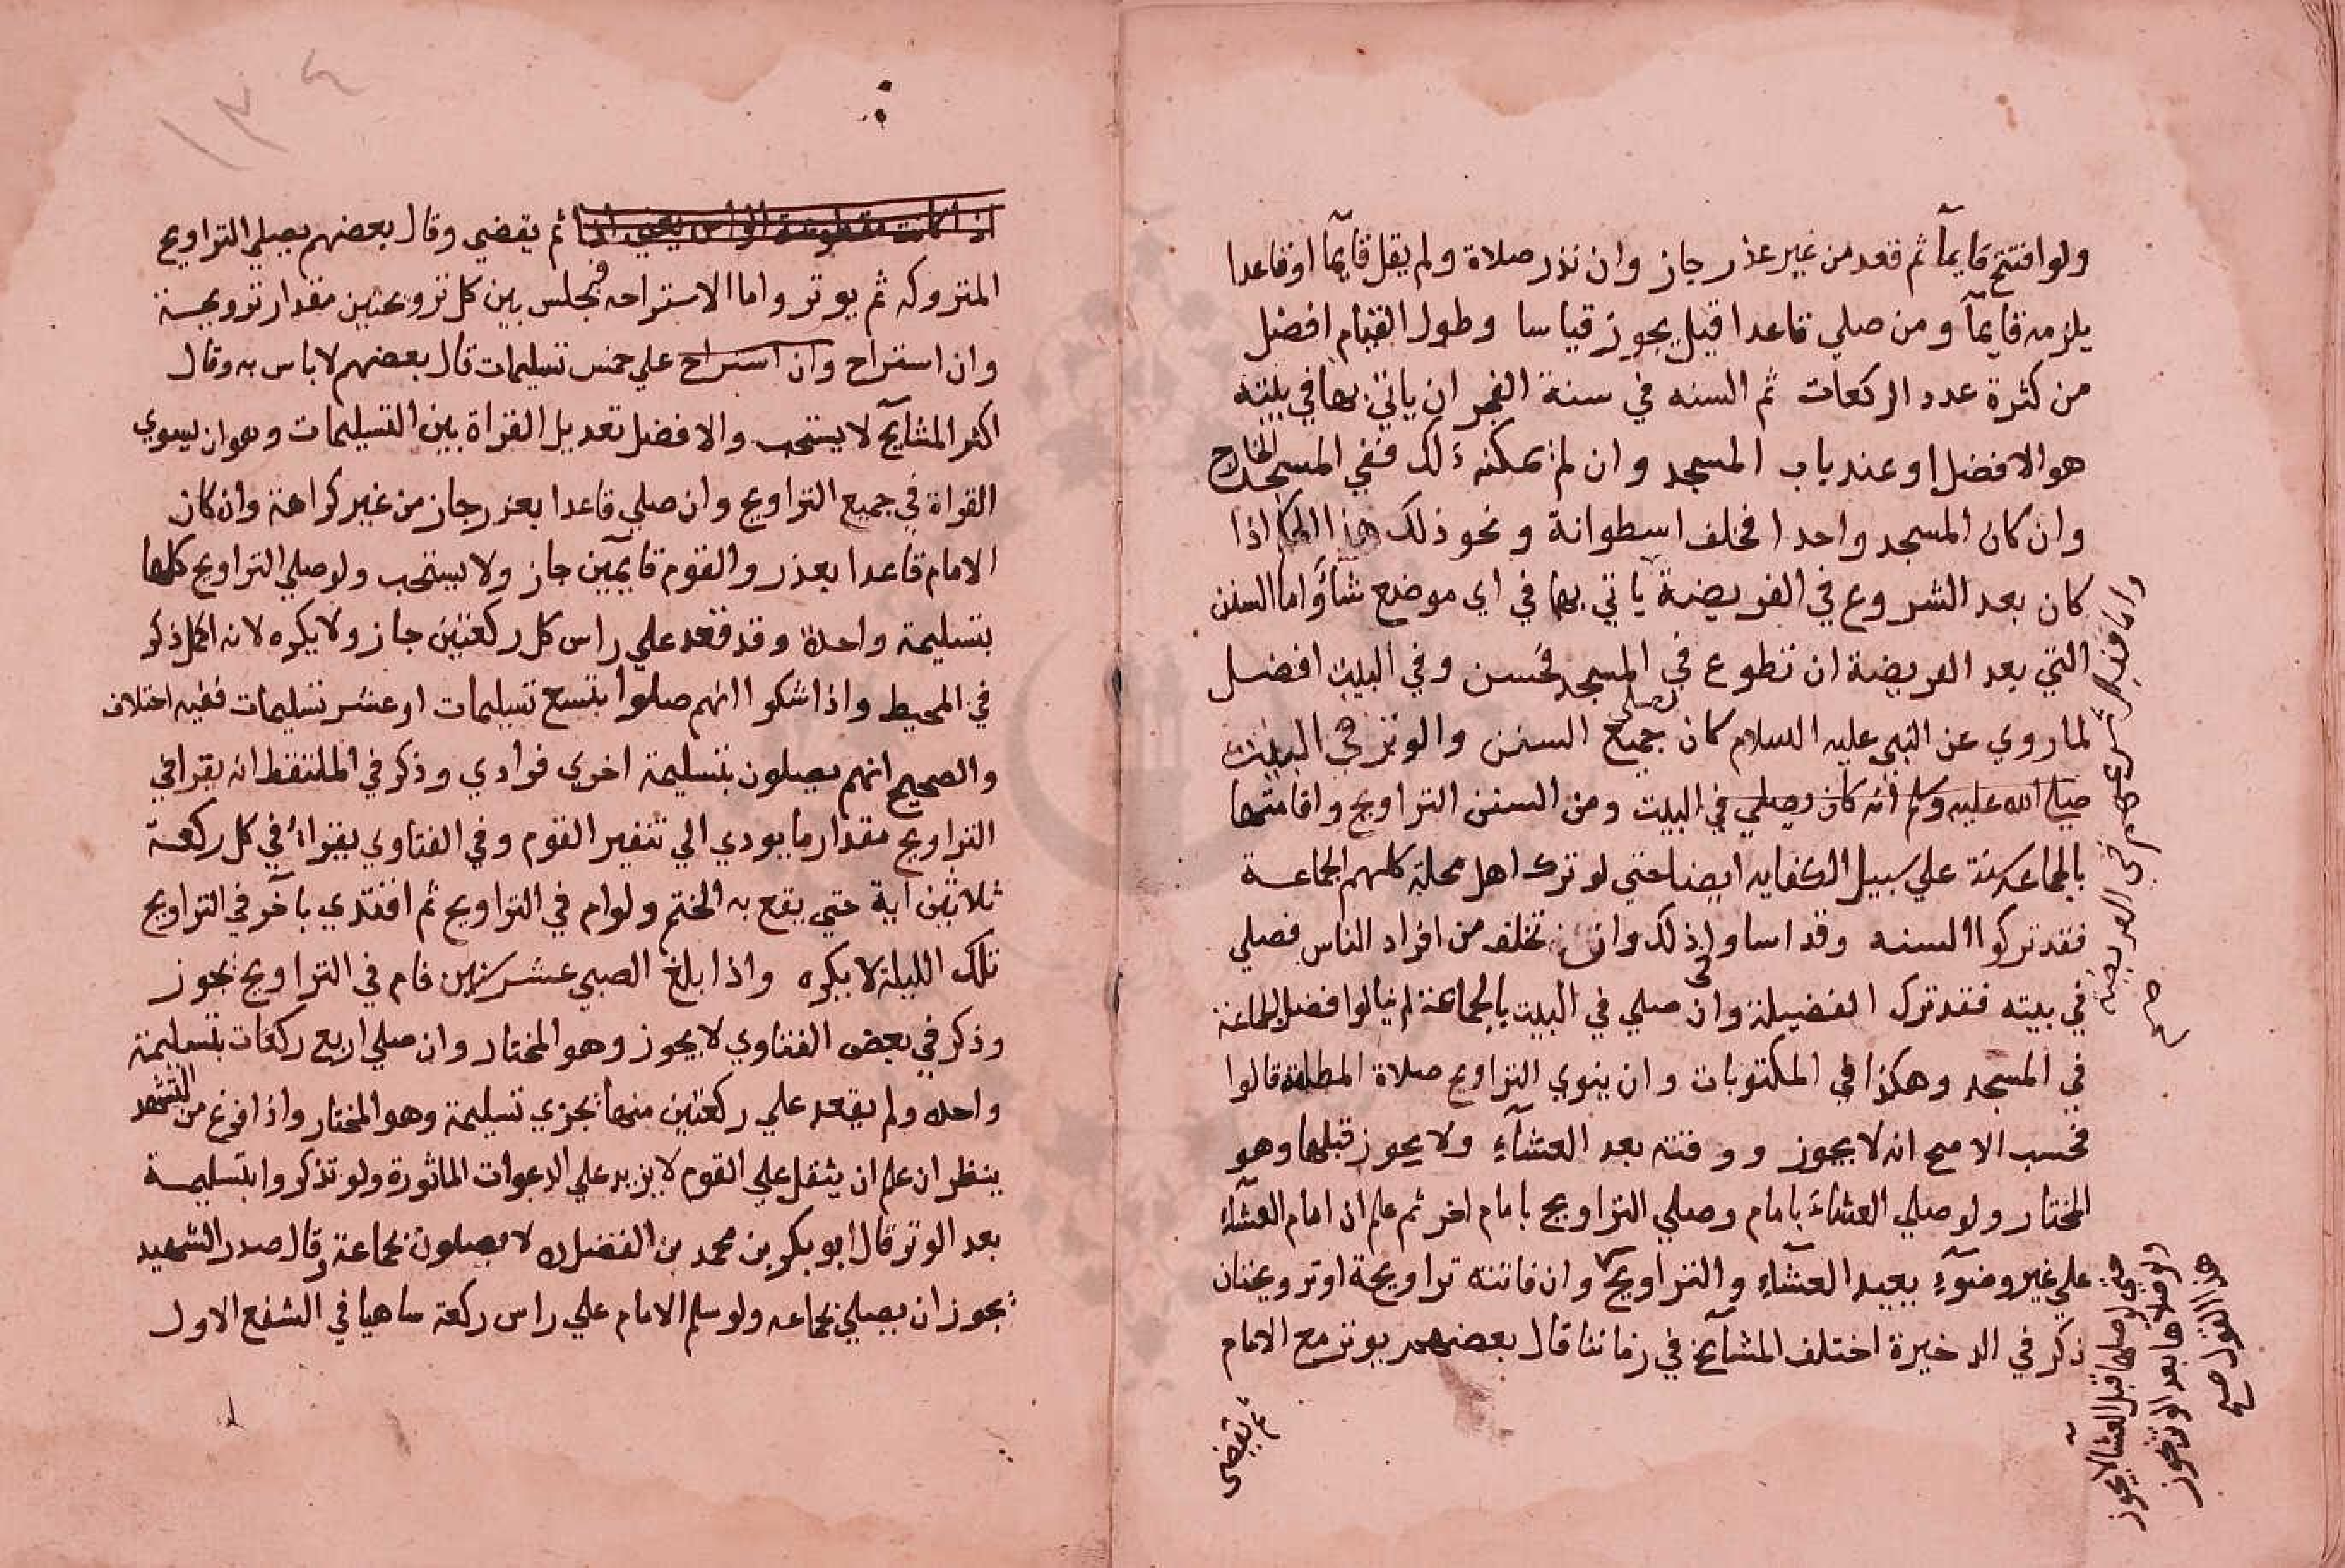 ولو افتتح قايمآ ثم قعد من غير عذر جاز وان نذر صلاة ولم يقل قايمآ او قاعدا
يلزمه قايمآ ومن صلي قاعدا قيل يجوز قياسا وطول القيام افضل
من كثرة عدد الركعات ثم السنه في سنة الفجر ان ياتي بها في بيته
هو الافضل او عند باب المسجد وان لم يمكنه ذلك ففي المسجد الخارج
وان كان المسجد واحدا فخلف اسطوانة ونحو ذلك هذا اذا
كان بعد الشروع في الفريضة ياتي بها في اي موضع شاؤ اما السنن
التي بعد الفريضة ان تطوع في المسجد فحسن وفي البيت افضل
لما روي عن النبي عليه السلام كان يصلي جميع السنن والوتر في البيت
صلي الله عليه وسلم انه كان يصلي في البيت ومن السنن التراويح واقامتها
بالجماعه سنة علي سبيل الكفايه ايضا حتي لو ترك اهل محلة كلهم الجماعة
فقد تركوا السنه وقد اساوا ذلك وان تخلف من افراد الناس فصلي
في بيته فقد ترك الفضيلة وان صلي في البيت بالجماعة لم ينالوا فضل الجماعة
في المسجد وهكذا في المكتوبات وان ينوي التراويح صلاة المطلقة قالوا
فحسب الاصح انه لا يجوز ووقته بعد العشاء ولا يجوز قبلها وهو
المختار ولو صلي العشاء بامام وصلي التراويح بامام اخر ثم علم ان امام العشاء
علي غير وضوء يعيد العشاء والتراويح وان فاتته تراويحة او ترويحتان
ذكر في الدخيرة اختلف المشايخ في زماننا قال بعضهم يوتر مع الامام
ثم يقضي
واما قبل شروعهم في الفريضة
صح
حتى لو صلها قبل العشا لا يجوز
ولو صلاها بعد الوتر يجوز
هذا القول صح
ثم يقضي وقال بعضهم يصلي التراويح
المتروكه ثم يوتر واما الاستراحه فيجلس بين كل ترويحتين مقدار ترويحة
وان استراح وان استراح علي خمس تسليمات قال بعضهم لا باس به وقال
اكثر المشايخ لا يستحب والافضل تعديل القراة بين التسليمات وهو ان يسوي
القراة في جميع التراويح وان صلي قاعدا بعذر جاز من غير كراهة وان كان
الامام قاعدا بعذر والقوم قايمين جاز ولا يستحب ولو صلي التراويح كلها
بتسليمة واحدة وقد قعد علي راس كل ركعتين جاز ولا يكره لانه اكمل ذكر
في المحيط واذا شكوا انهم صلوا بتسع تسليمات او عشر تسليمات ففيه اختلاف
والصحيح انهم يصلون بتسليمة اخري فرادي وذكر في الملتقط انه يقرا في
التراويح مقدار ما يودي الي تنفير القوم وفي الفتاوي يقراء في كل ركعة
ثلاثين آية حتي يقع به الختم ولو ام في التراويح ثم اقتدي باخر في التراويح
تلك الليلة لا يكره واذا بلغ الصبي عشر سنين فام في التراويح يجوز
وذكر في بعض الفتاوي لا يجوز وهو المختار وان صلي اربع ركعات بتسليمة
واحده ولم يقعد علي ركعتين منها تجزي تسليمة وهو المختار واذا فرغ من التشهد
ينظر ان علم ان يثقل علي القوم لا يزيد علي الدعوات الماثورة ولو تذكروا بتسليمة
بعد الوتر قال ابو بكر بن محمد بن الفضل لا يصلون بجماعة وقال صدر الشهيد
يجوز ان يصلي بجماعه ولو سلم الامام علي راس ركعة ساهيا في الشفع الاول